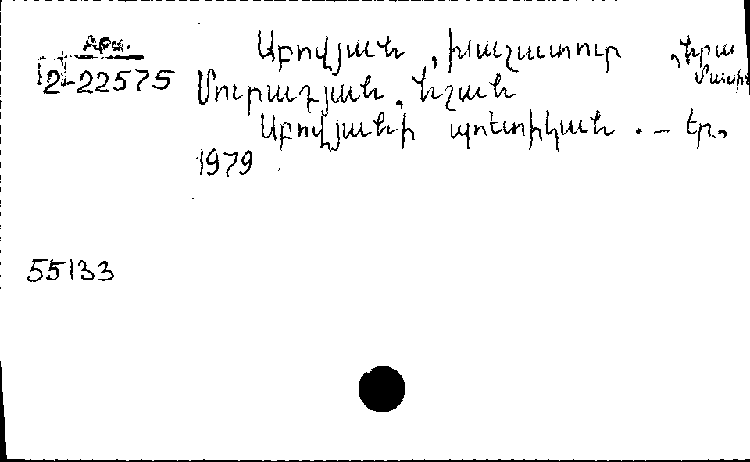 Արս.
2-22575
Աբովյան , Խաչատուր , նրա մասին
Մուրադյան , Նշան
Աբովյանի պոետիկան . – Եր.,
1979
55133